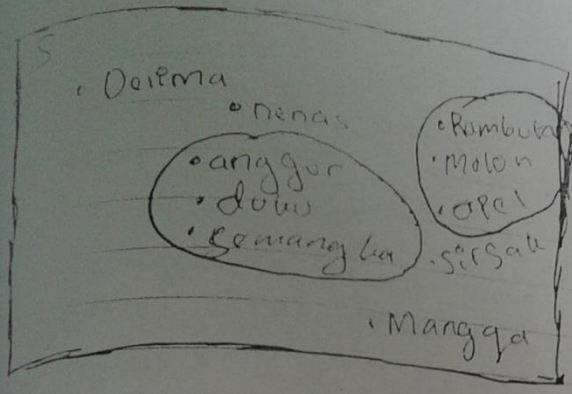 S
• Delima
• nenas
• anggur
• duku
• semangka
• Rambutan
• Melon
• apel
• sirsak
• Mangga